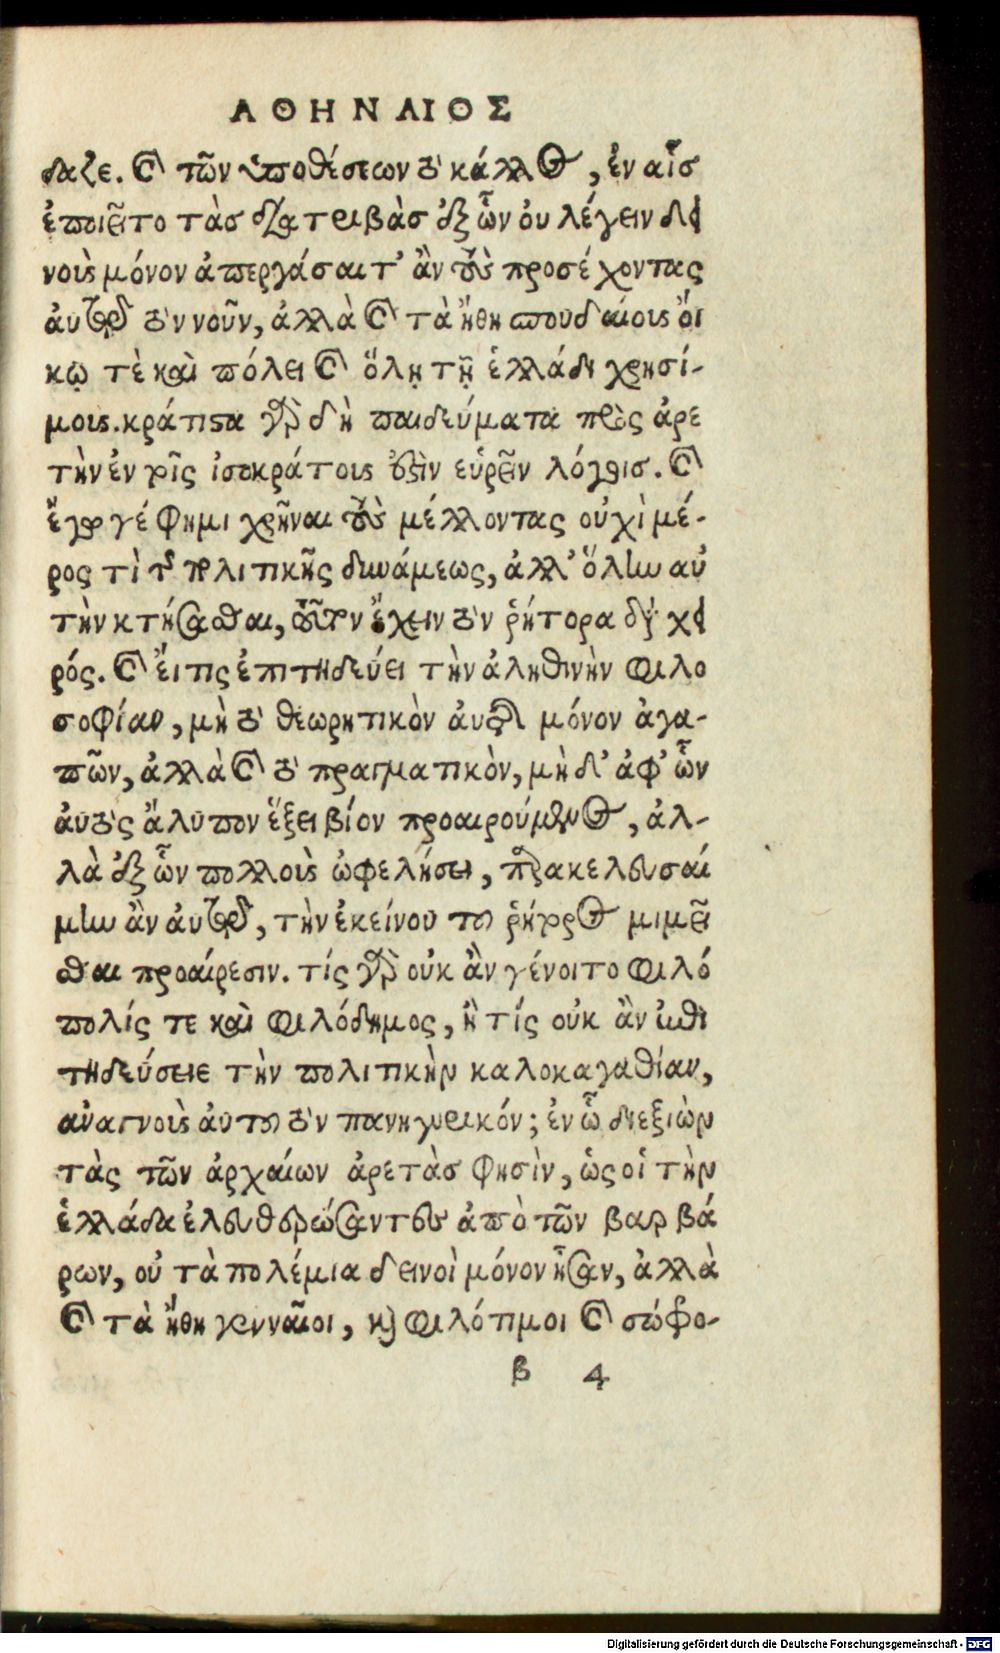 ΑΘΗΝΑΙΟΣ
δαζε. καὶ τῶν ὑποθέσεων τὸ κάλλος, ἐν αἷσ
ἐποιεῖτο τὰσ διατριβὰσ ἐξ ὧν ὀυ λέγειν δει
νοὺς μόνον ἀπεργάσαιτ' ἂν τοὺς προσέχοντας
ἀυτῷ τὸν νοῦν, ἀλλὰ καὶ τὰ ἤθη σπουδαίους ὄι
κῳ τὲ καὶ πόλει καὶ ὅλῃ τῇ ἑλλάδι χρησί-
μοις. κράτιστα γὰρ δὴ παιδεύματα πρὸς ἀρε
τὴν ἐν τοῖς ἰσοκράτους ἐστὶν εὑρεῖν λόγοισ. καὶ
ἔγωγέ φημι χρῆναι τοὺς μέλλοντας οὐχὶ μέ-
ρος τὶ τῆς πολιτικῆς δυνάμεως, ἀλλ' ὅλην αὐ
τὴν κτήσασθαι, τοῦτον ἔχειν τὸν ῥήτορα διὰ χει
ρός. καὶ ἔι τις ἐπιτηδεύει τὴν ἀληθινὴν φιλο
σοφίαν, μὴ τὸ θεωρητικὸν ἀυτῆς μόνον ἀγα-
πῶν, ἀλλὰ καὶ τὸ πραγματικὸν, μὴ δ' ἀφ' ὧν
ἀυτὸς ἄλυπον ἕξει βίον προαιρούμενος, ἀλ-
λὰ ἐξ ὧν πολλοὺς ὠφελήσει, παρακελευσαί
μην ἂν ἀυτῷ, τὴν ἐκείνου τοῦ ῥήτορος μιμεῖ
σθαι προαίρεσιν. τίς γὰρ οὐκ ἂν γένοιτο φιλό
πολίς τε καὶ φιλόδημος, ἢ τίς οὐκ ἂν ἐπι
τηδεύσειε τὴν πολιτικὴν καλοκαγαθίαν,
ἀναγνοὺς ἀυτοῦ τὸν πανηγυρικόν; ἐν ᾧ διεξιὼν
τὰς τῶν ἀρχαίων ἀρετὰσ φησὶν, ὡς οἱ τὴν
ἑλλάδα ἐλευθερώσαντες ἀπὸ τῶν βαρβά
ρων, οὐ τὰ πολέμια δεινοὶ μόνον ἦσαν, ἀλλὰ
καὶ τὰ ἤθη γενναῖοι, καὶ φιλότιμοι καὶ σώφρο-
β 4
Digitalisierung gefördert durch die Deutsche Forschungsgemeinschaft - DFG